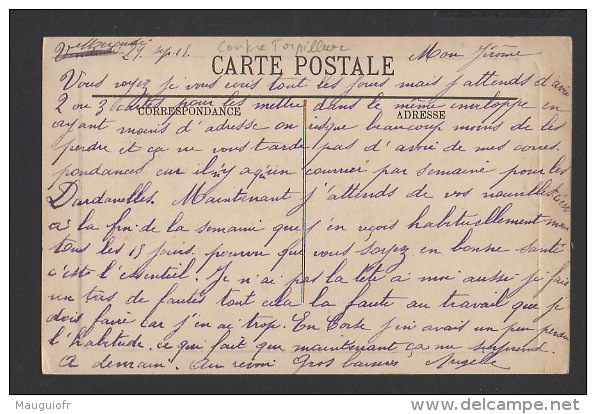 Mercredi 27. 7. 15. Contre Torpilleur Mon Jérôme
CARTE POSTALE
Vous voyez je vous écris tout les jours mais j'attends d'avoir
2 ou 3 cartes pour les mettre dans le même enveloppe en
CORRESPONDANCE ADRESSE
ayant moins d'adresse on risque beaucoup moins de les
perdre et ça ne vous tarde pas d'avoir de mes corres
pondances car il n'y a qu'un courrier par semaine pour les
Dardanelles. Maintenant j'attends de vos nouvelles c'est
à la fin de la semaine que j'en reçois habituellement
tous les 15 jours. pourvu que vous soyez en bonne santé
c'est l'essentiel. Je n'ai pas la tête à moi aussi je fais
un tas de fautes tout cela la faute au travail que je
dois faire car j'en ai trop. En Corse j'en avais un peu perdu
l'habitude. ce qui fait que maintenant ça me surprend.
A demain. Au revoir Gros baisers
Copyright ©
Mauguiofr / www.delcampe.net